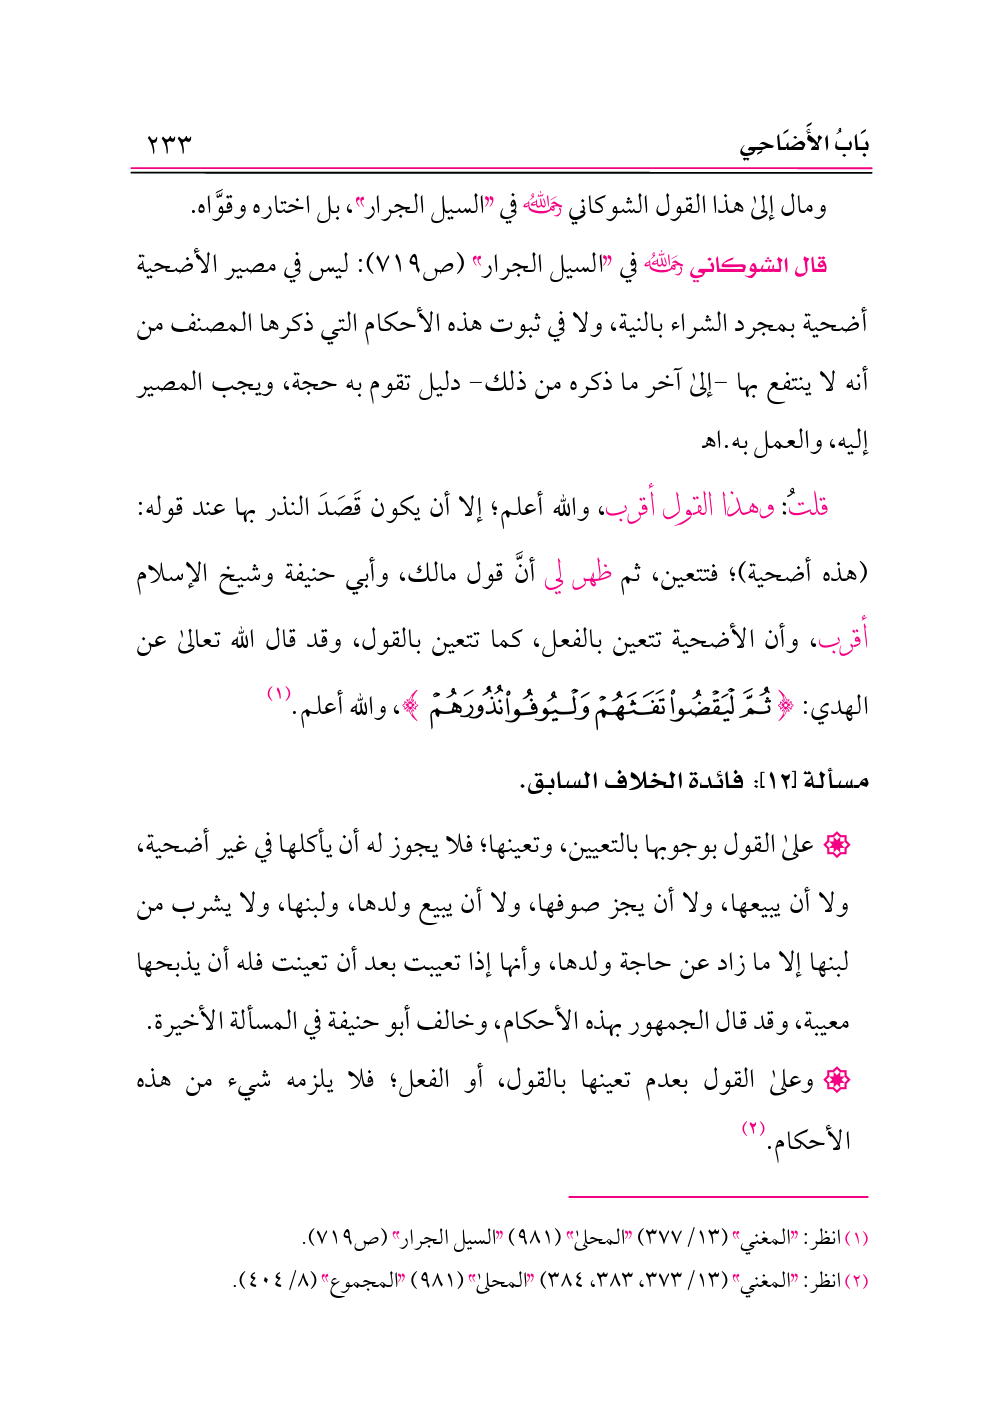 بَابُ الأَضَاحِي
٢٣٣
ومال إلىٰ هذا القول الشوكاني رحمه الله في "السيل الجرار"، بل اختاره وقوَّاه.
قال الشوكاني رحمه الله في "السيل الجرار" (ص٧١٩): ليس في مصير الأضحية
أضحية بمجرد الشراء بالنية، ولا في ثبوت هذه الأحكام التي ذكرها المصنف من
أنه لا ينتفع بها -إلىٰ آخر ما ذكره من ذلك- دليل تقوم به حجة، ويجب المصير
إليه، والعمل به.اهـ
قلتُ: وهذا القول أقرب، والله أعلم؛ إلا أن يكون قَصَدَ النذر بها عند قوله:
(هذه أضحية)؛ فتتعين، ثم ظهر لي أنَّ قول مالك، وأبي حنيفة وشيخ الإسلام
أقرب، وأن الأضحية تتعين بالفعل، كما تتعين بالقول، وقد قال الله تعالىٰ عن
الهدي: ﴿ ثُمَّ لْيَقْضُوا۟ تَفَثَهُمْ وَلْيُوفُوا۟ نُذُورَهُمْ ﴾، والله أعلم.(١)
مسألة [١٢]: فائدة الخلاف السابق.
۞ علىٰ القول بوجوبها بالتعيين، وتعينها؛ فلا يجوز له أن يأكلها في غير أضحية،
ولا أن يبيعها، ولا أن يجز صوفها، ولا أن يبيع ولدها، ولبنها، ولا يشرب من
لبنها إلا ما زاد عن حاجة ولدها، وأنها إذا تعيبت بعد أن تعينت فله أن يذبحها
معيبة، وقد قال الجمهور بهذه الأحكام، وخالف أبو حنيفة في المسألة الأخيرة.
۞ وعلىٰ القول بعدم تعينها بالقول، أو الفعل؛ فلا يلزمه شيء من هذه
الأحكام.(٢)
(١) انظر: "المغني" (١٣/ ٣٧٧) "المحلىٰ" (٩٨١) "السيل الجرار" (ص٧١٩).
(٢) انظر: "المغني" (١٣/ ٣٧٣، ٣٨٣، ٣٨٤) "المحلىٰ" (٩٨١) "المجموع" (٨/ ٤٠٤).